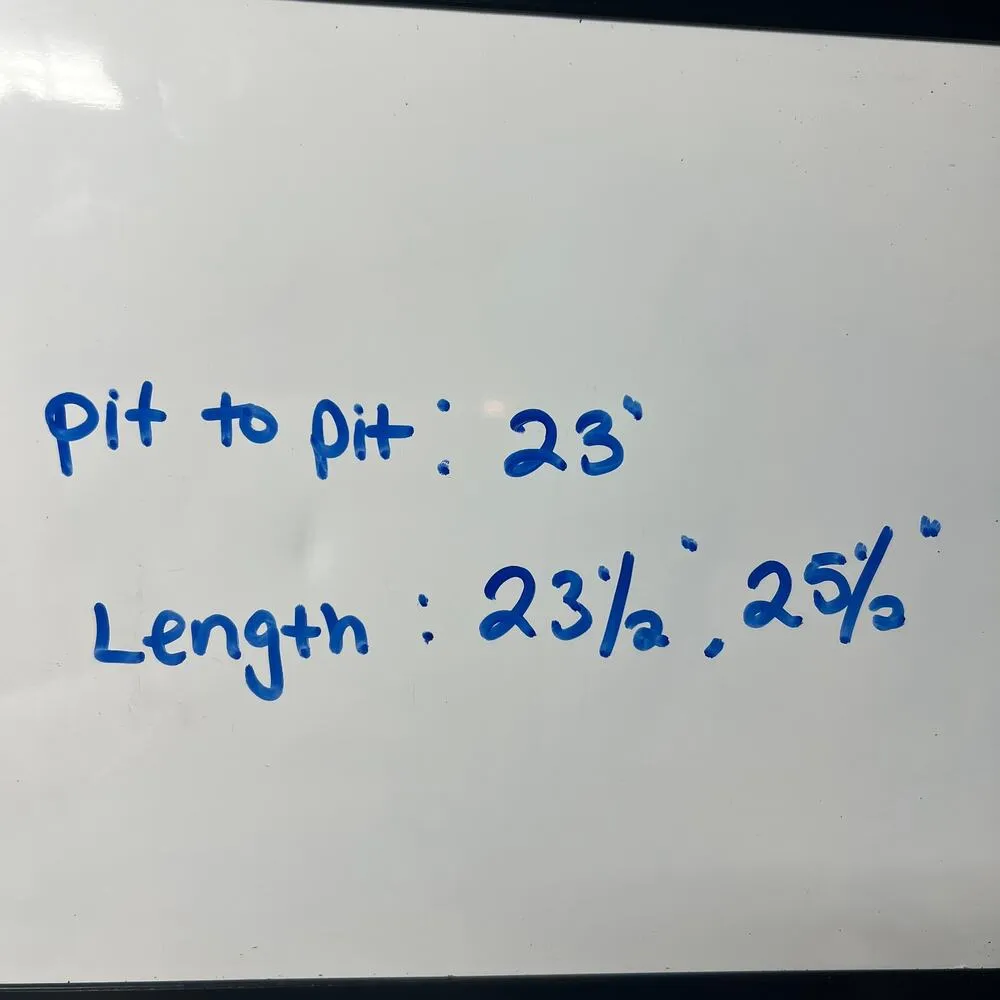 pit to pit : 23"
Length : 23 1/2", 25 1/2"